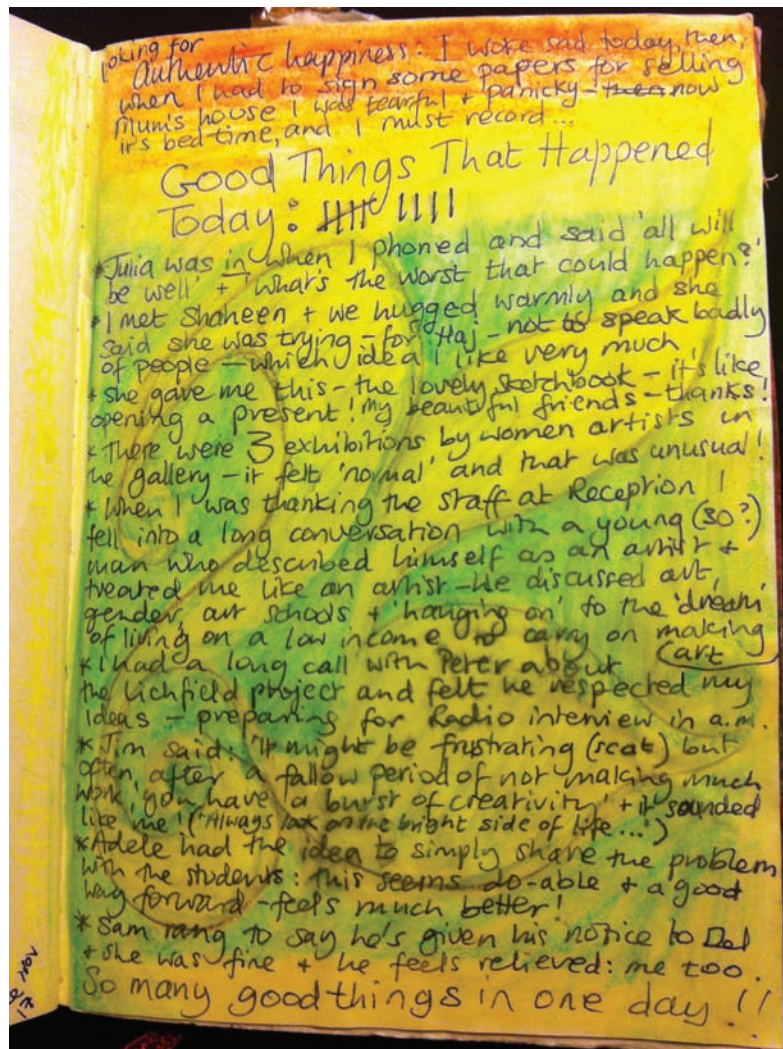 looking for
Authentic happiness: I woke sad today, then,
when I had to sign some papers for selling
Mum's house I was tearful + panicky - then now
it's bed time, and I must record...
Good Things That Happened
Today: |||| ||||
*Julia was in when I phoned and said 'all will
be well' + 'what's the worst that could happen?'
*I met Shaheen + we hugged warmly and she
said she was trying - for Haj - not to speak badly
of people - which idea I like very much
* she gave me this - the lovely sketchbook - it's like
opening a present! My beautiful friends - thanks!
* There were 3 exhibitions by women artists in
the gallery - it felt 'normal' and that was unusual!
* When I was thanking the staff at Reception I
fell into a long conversation with a young (30?)
man who described himself as an artist +
treated me like an artist - He discussed art,
gender, art schools + 'hanging on' to the 'dream'
of living on a low income to carry on making
art
*I had a long call with Peter about
the Lichfield project and felt he respected my
ideas - preparing for Radio interview in a.m.
*Jim said: 'It might be frustrating (scat) but
often, after a fallow period of not making much
work, you have a burst of creativity' + it sounded
like me! ('Always look on the bright side of life...')
*Adele had the idea to simply share the problem
with the students: this seems do-able + a good
way forward - feels much better!
* Sam rang to say he's given his notice to Del
+ she was fine + he feels relieved: me too.
So many good things in one day!!